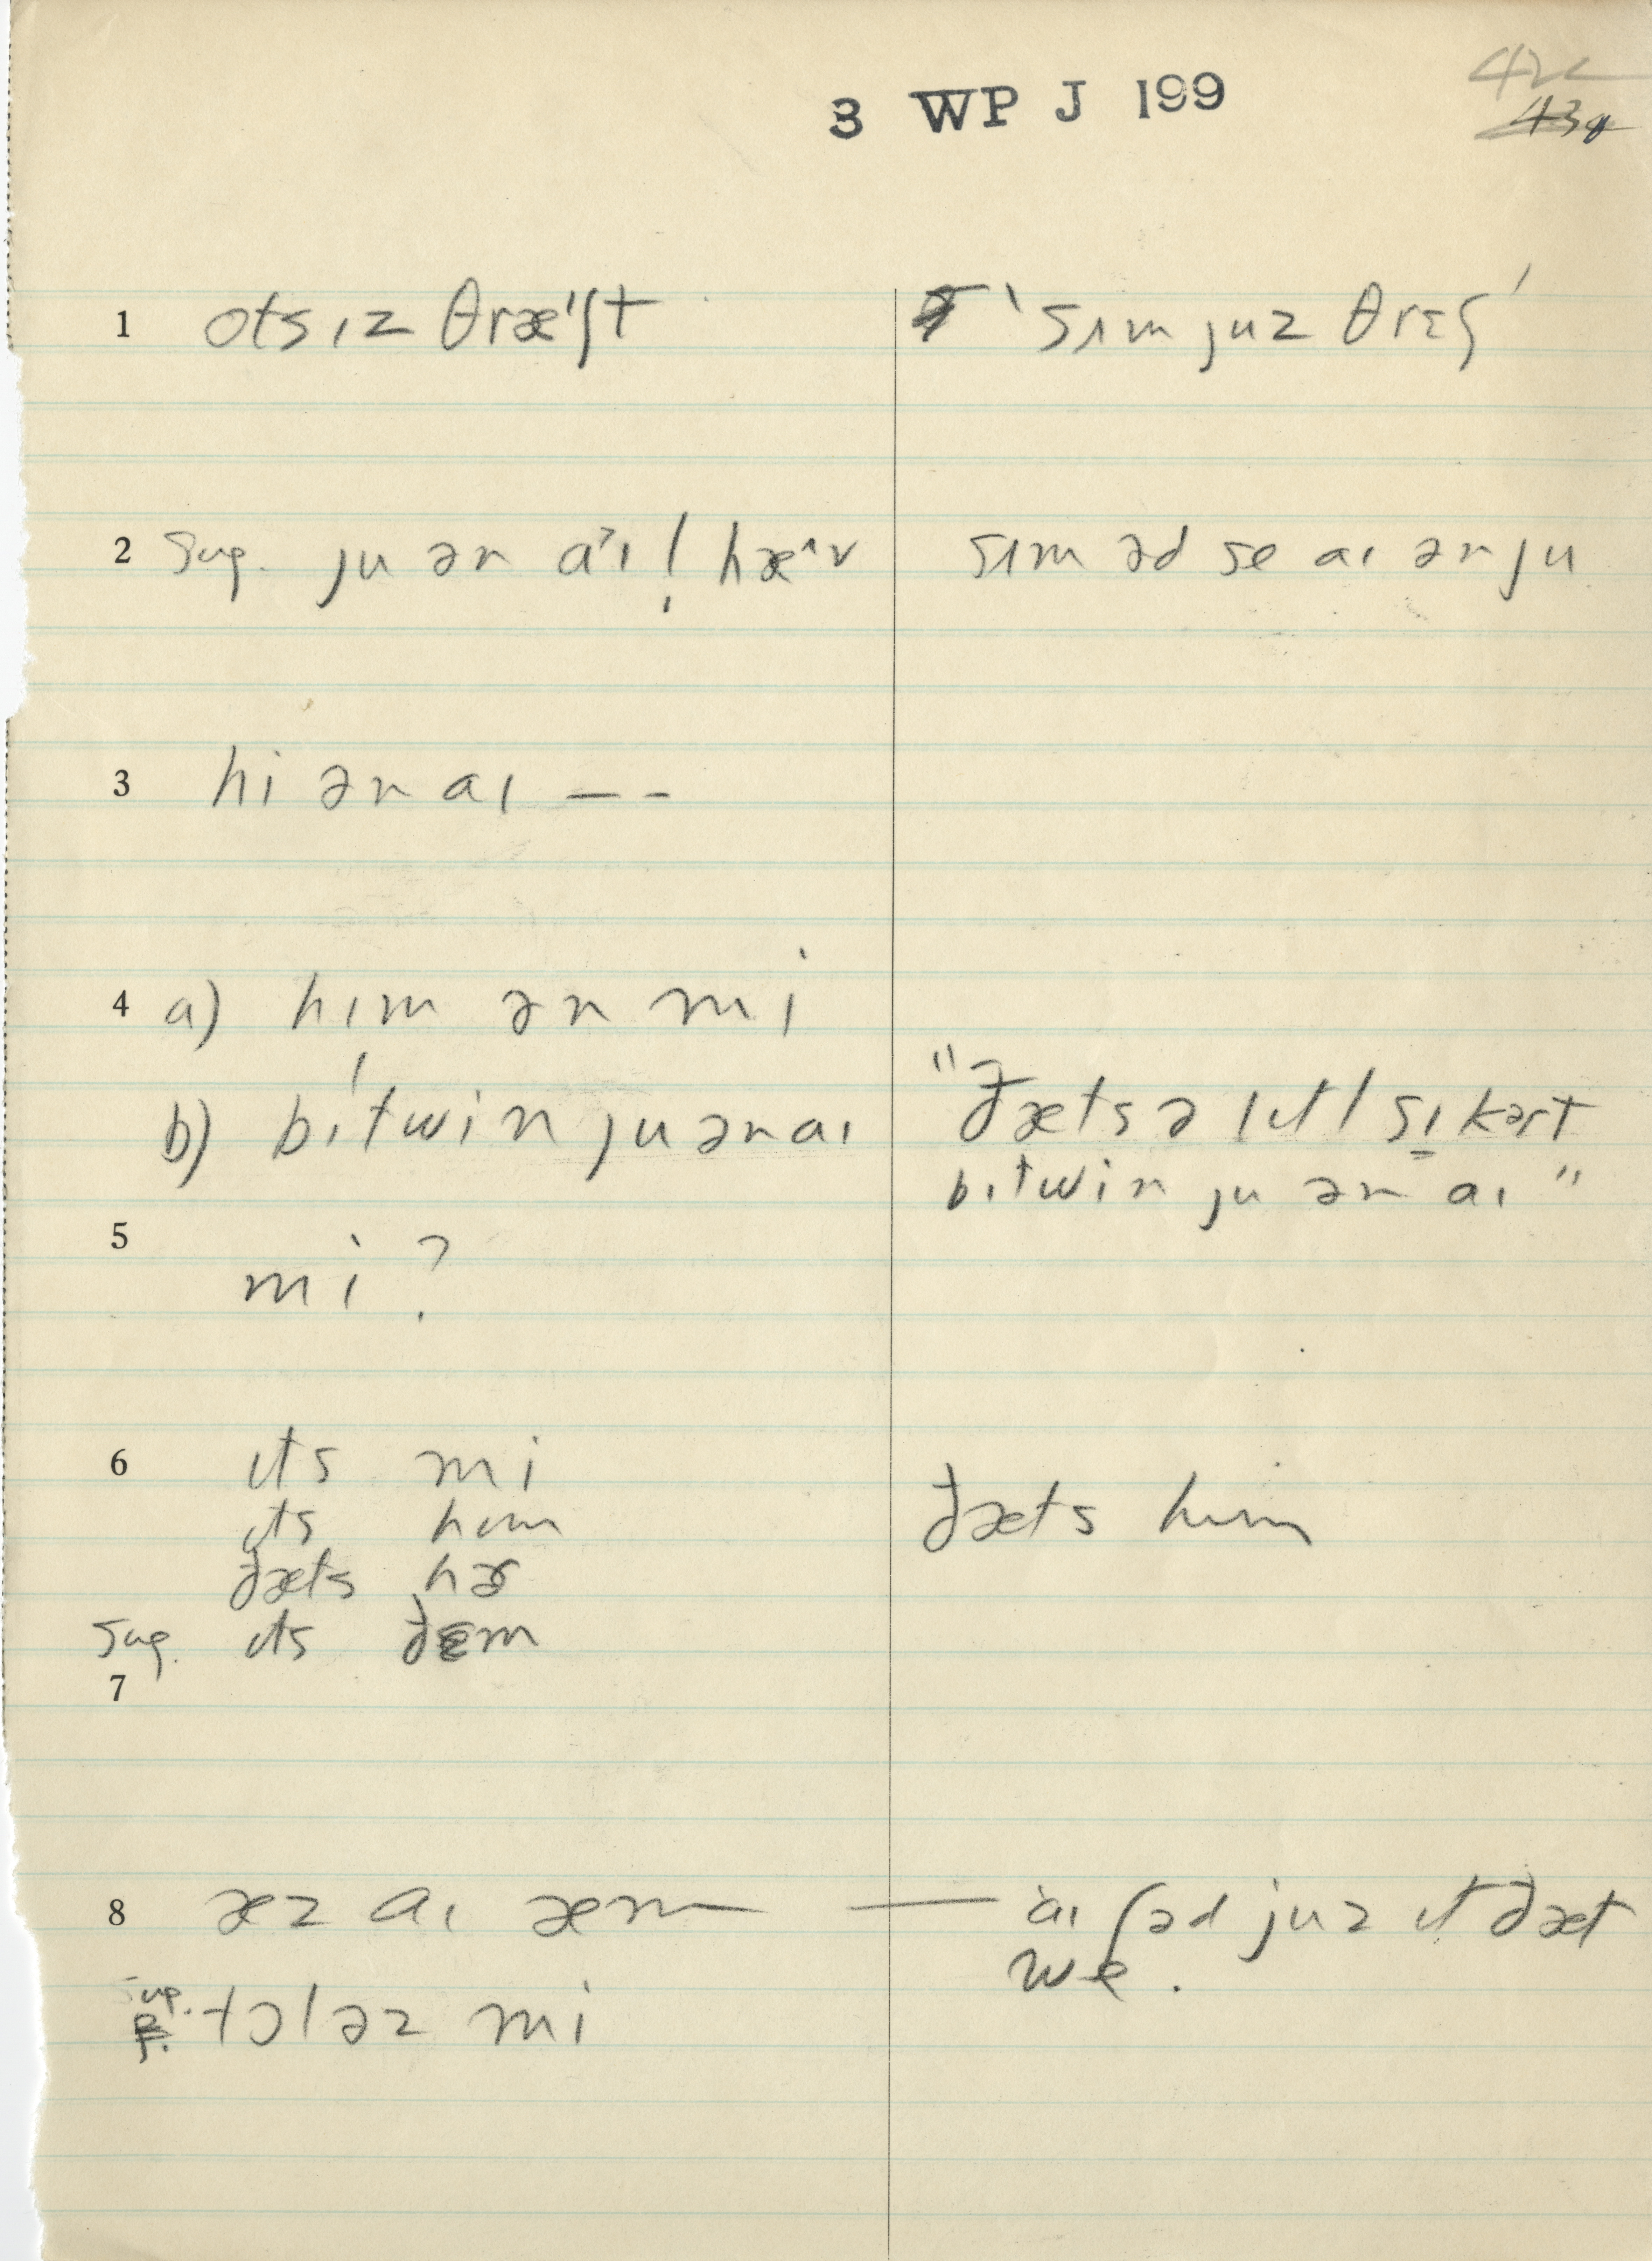 3 WP J 199
42
43
1 ots ɪz θræᶦʃt
'sɪm juz θrɛʃ'
2 Sug. ju ən aˑɪ ! hæˆv
sɪm əd se aɪ ən ju
3 hi ən aɪ — -
4 a) hɪm ən mi
b) bɪ'twin ju ən aɪ
"ðæts ə lɪtl sɪkərt
bɪtwin ju ən aɪ"
5
mi ?
6 ɪts mi
ɪts hɪm
ðæts hɪm
ðæts hɚ
Sug. ɪts ðɛm
7
8 æz aɪ æm —
— aɪ ʃəd juz ɪt ðæt
we.
Sug. tɔləz mi